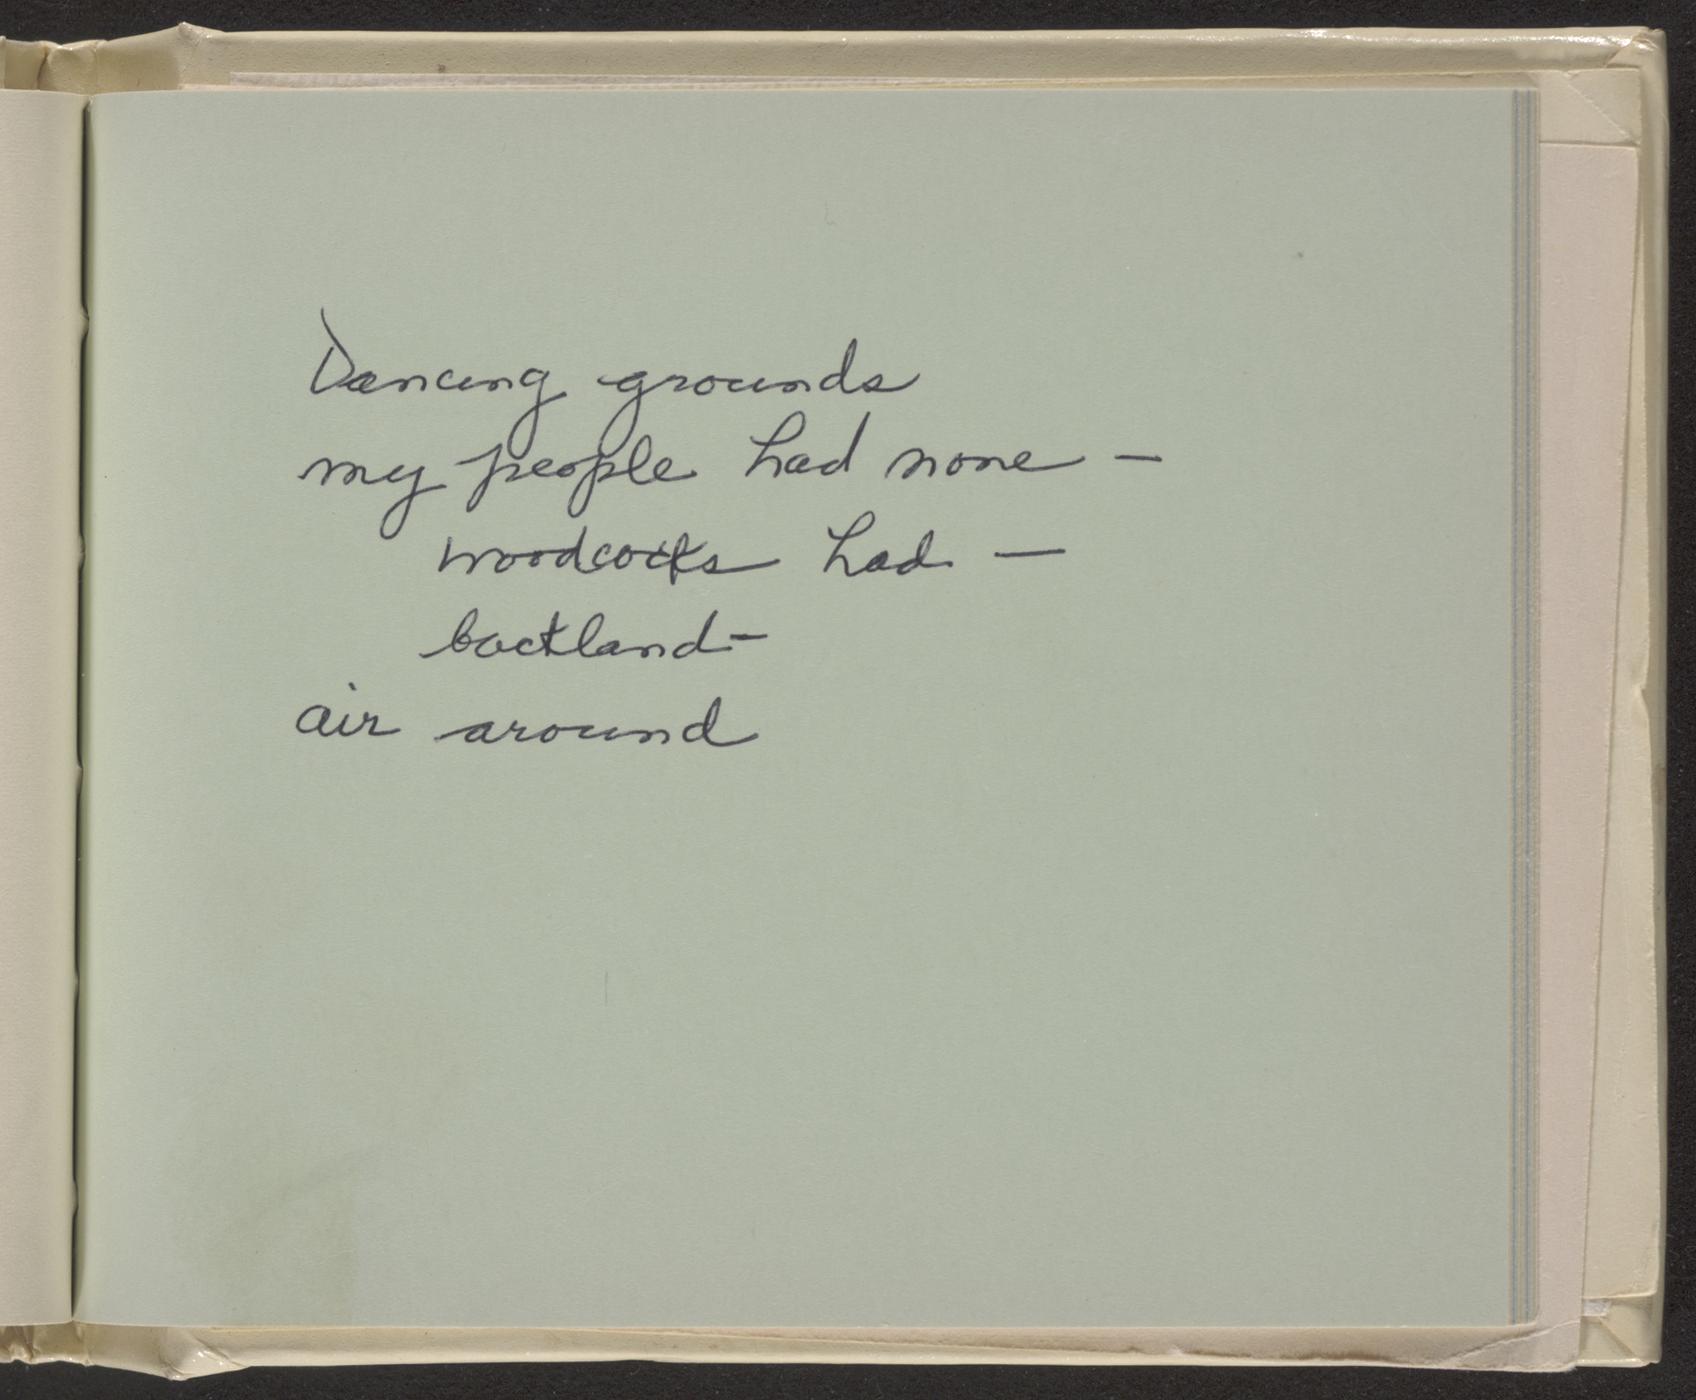 Dancing grounds
my people had none —
woodcocks had —
backland —
air around